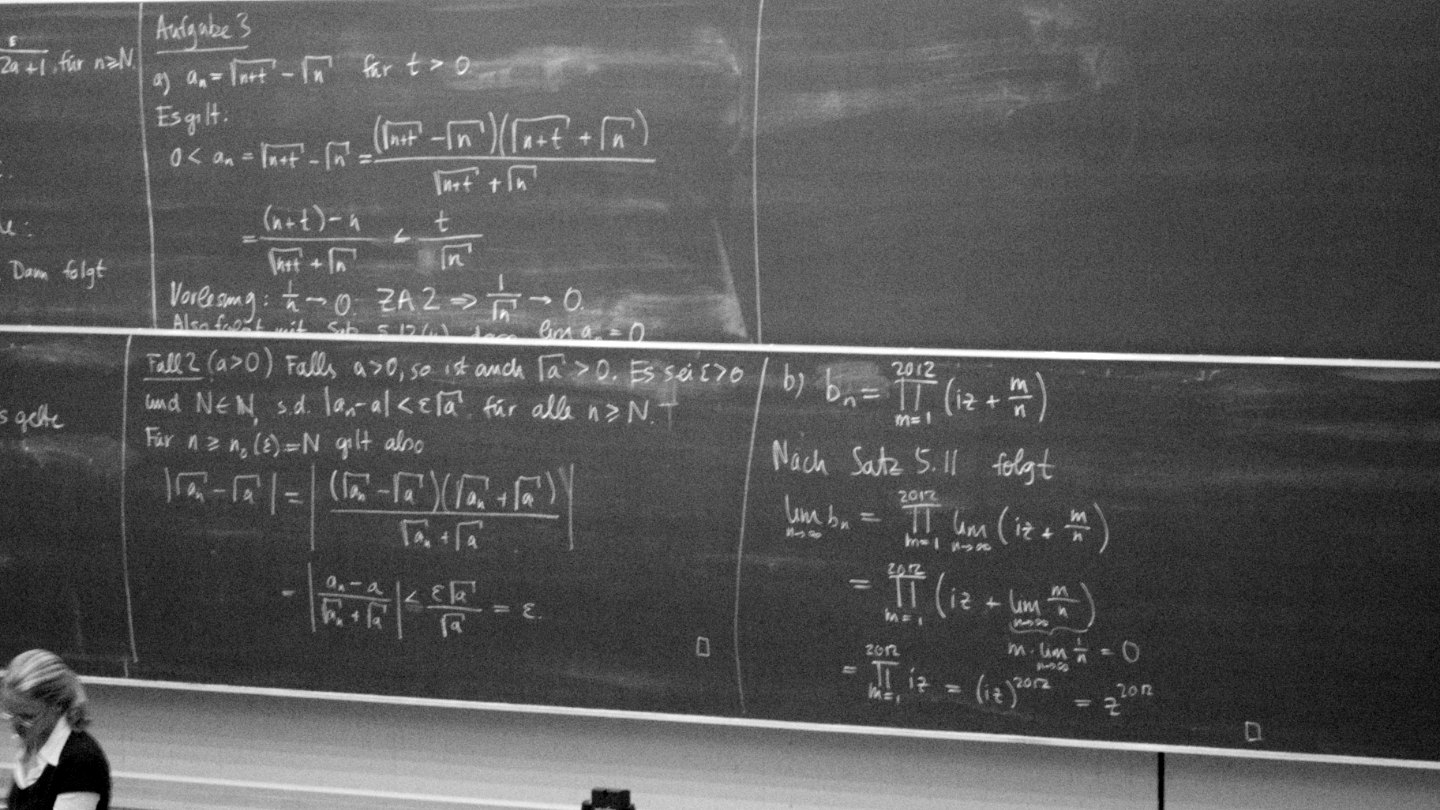 ε/(2a+1), für n≥N.
u:
Dann folgt
Aufgabe 3
a) aₙ = √(n+t) - √n für t > 0
Es gilt:
0 < aₙ = √(n+t) - √n = ((√(n+t) - √n)(√(n+t) + √n))/(√(n+t) + √n)
= ((n+t)-n)/(√(n+t) + √n) < t/√n
Vorlesung: 1/n → 0. ZA 2 ⇒ 1/√n → 0.
Also folgt mit Satz 5.12 lim aₙ = 0
s gelte
Fall 2 (a>0) Falls a>0, so ist auch √a > 0. Es sei ε>0
und N∈ℕ, s.d. |aₙ-a| < ε√a für alle n ≥ N.
Für n ≥ n₀(ε)=N gilt also
|√aₙ - √a| = |((√aₙ - √a)(√aₙ + √a))/(√aₙ + √a)|
= |(aₙ - a)/(√aₙ + √a)| < (ε√a)/√a = ε.
□
b) bₙ = ∏_{m=1}^{2012} (iz + m/n)
Nach Satz 5.11 folgt
lim_{n→∞} bₙ = ∏_{m=1}^{2012} lim_{n→∞} (iz + m/n)
= ∏_{m=1}^{2012} (iz + lim_{n→∞} m/n)
m · lim_{n→∞} 1/n = 0
= ∏_{m=1}^{2012} iz = (iz)^{2012} = z^{2012}
□